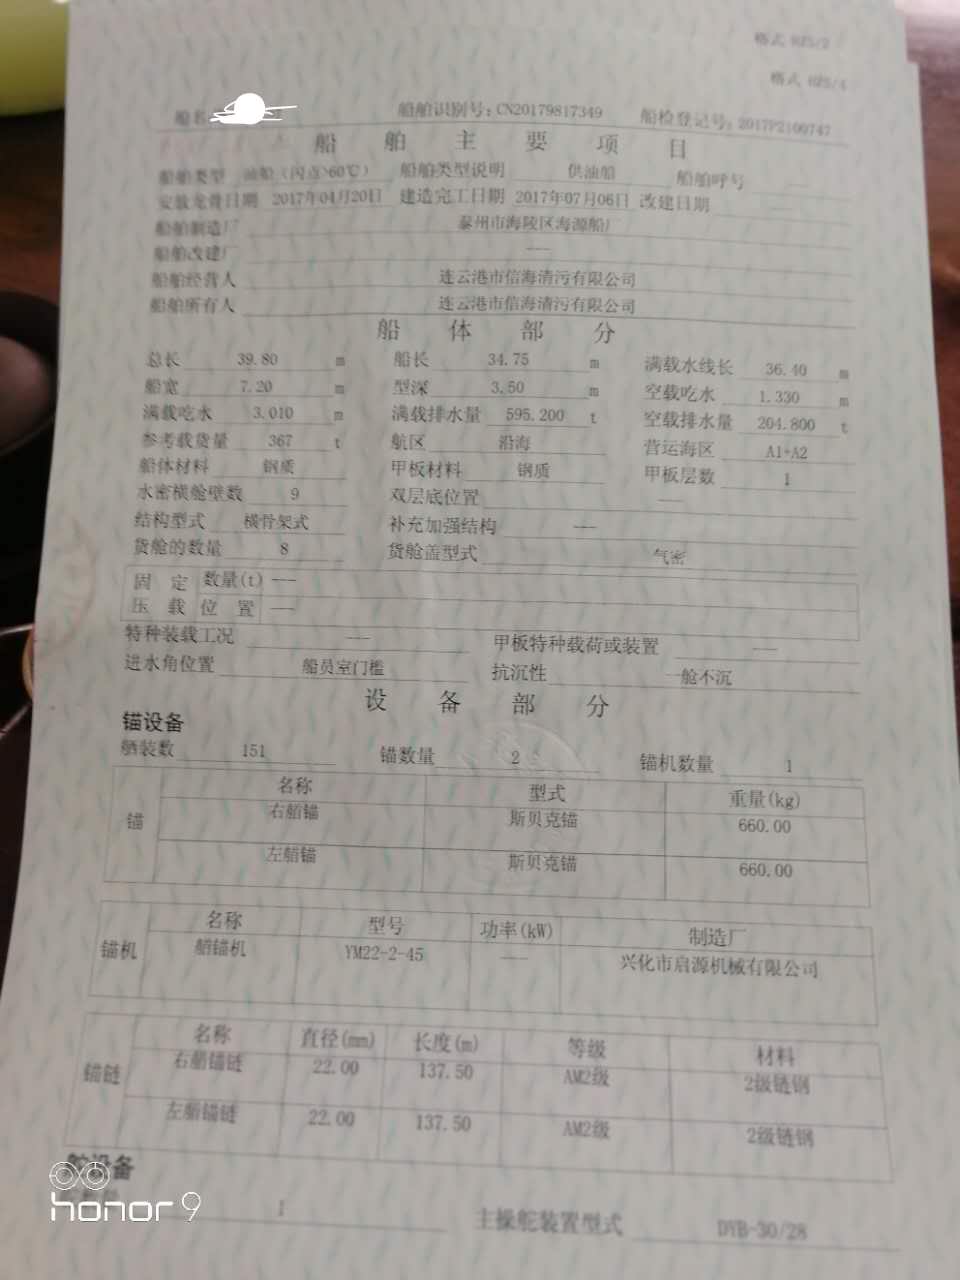 格式 HZS/2
格式 HZS/4
船名 船舶识别号：CN20179817349 船检登记号：2017P2100747
船舶主要项目
船舶类型 油船（闪点>60℃） 船舶类型说明 供油船 船舶呼号 ---
安放龙骨日期 2017年04月20日 建造完工日期 2017年07月06日 改建日期
船舶制造厂 泰州市海陵区海源船厂
船舶改建厂 ---
船舶经营人 连云港市信海清污有限公司
船舶所有人 连云港市信海清污有限公司
船体部分
总长 39.80 m 船长 34.75 m 满载水线长 36.40 m
船宽 7.20 m 型深 3.50 m 空载吃水 1.330 m
满载吃水 3.010 m 满载排水量 595.200 t 空载排水量 204.800 t
参考载货量 367 t 航区 沿海 营运海区 A1+A2
船体材料 钢质 甲板材料 钢质 甲板层数 1
水密横舱壁数 9 双层底位置 ---
结构型式 横骨架式 补充加强结构 ---
货舱的数量 8 货舱盖型式 气密
固定 数量(t) ---
压载 位置 ---
特种装载工况 --- 甲板特种载荷或装置 ---
进水角位置 船员室门槛 抗沉性 一舱不沉
设备部分
锚设备
舾装数 151 锚数量 2 锚机数量 1
锚 名称 型式 重量(kg)
右艏锚 斯贝克锚 660.00
左艏锚 斯贝克锚 660.00
锚机 名称 型号 功率(kW) 制造厂
艏锚机 YM22-2-45 --- 兴化市启源机械有限公司
锚链 名称 直径(mm) 长度(m) 等级 材料
右艏锚链 22.00 137.50 AM2级 2级链钢
左艏锚链 22.00 137.50 AM2级 2级链钢
舵设备
1 主操舵装置型式 DYB-30/28
honor 9